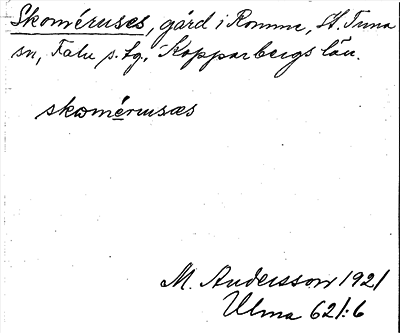 Skoméruses, gård i Romme, St. Tuna
sn, Falu s. tg., Kopparbergs län.
skomérusæs
M. Andersson 1921
Ulma 62/:6